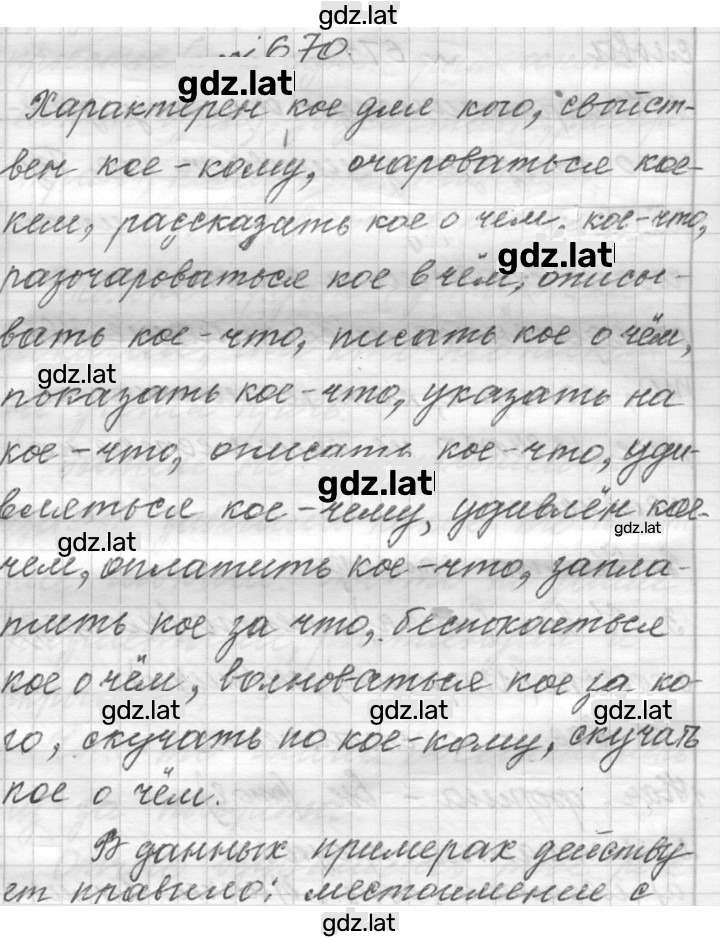 gdz.lat
№ 670.
gdz.lat
Характерен кое для кого, свойст-
вен кое-кому, очароваться кое-
кем, рассказать кое о чем. кое-что,
gdz.lat
разочароваться кое в чём, описы-
вать кое-что, писать кое о чём,
gdz.lat
показать кое-что, указать на
кое-что, описать кое-что, уди-
gdz.lat
вляться кое-чему, удивлён кое-
gdz.lat
gdz.lat
чем, оплатить кое-что, запла-
тить кое за что, беспокоиться
кое о чём, волноваться кое за ко-
gdz.lat gdz.lat gdz.lat
го, скучать по кое-кому, скучать
кое о чём.
В данных примерах действу
ет правило: местоимение с
gdz.lat